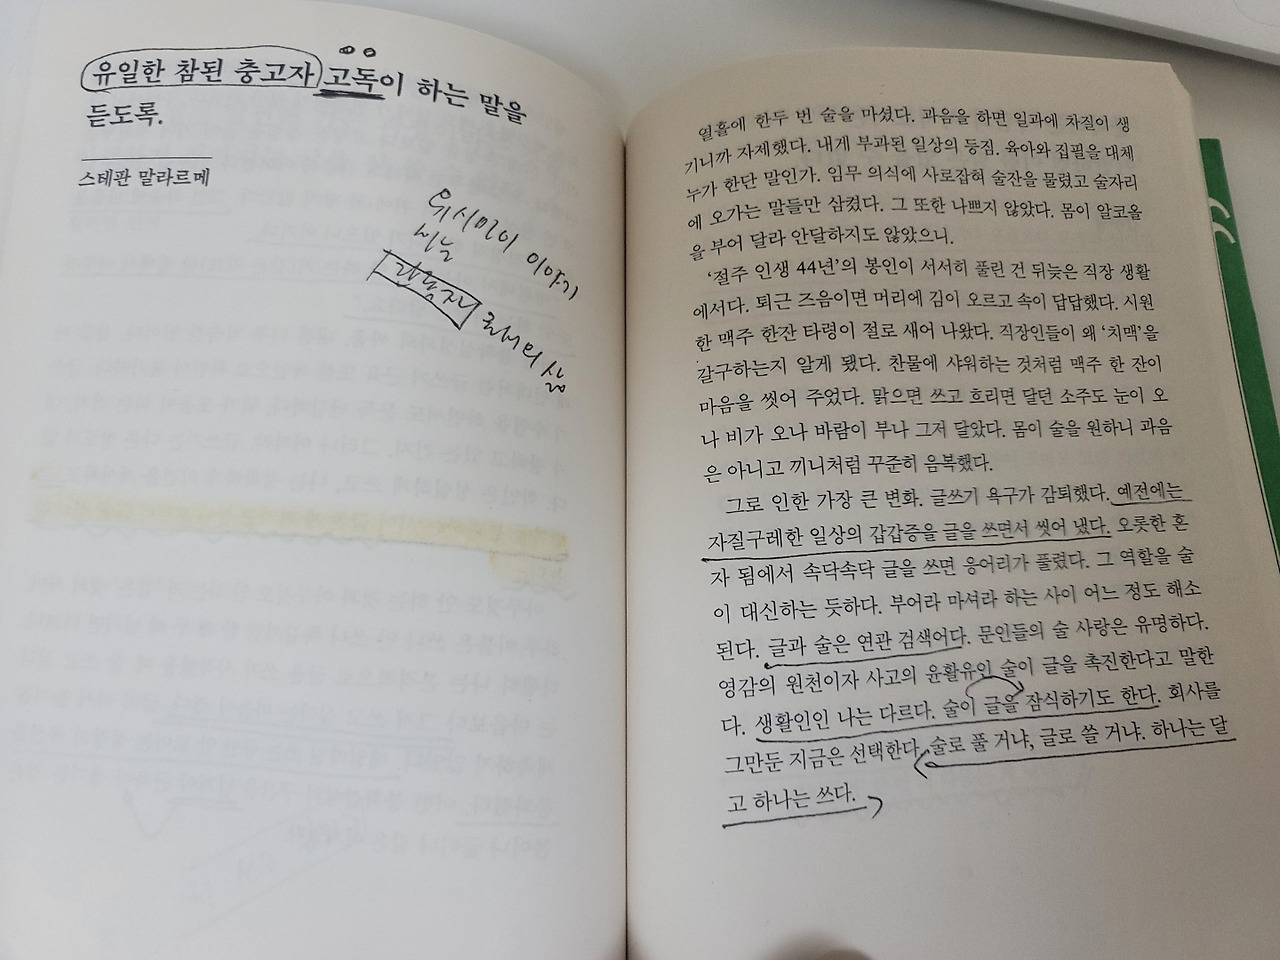 유일한 참된 충고자 고독이 하는 말을
듣도록.
스테판 말라르메
유시민이 이야기
하는
관용자
로서의 삶
열흘에 한두 번 술을 마셨다. 과음을 하면 일과에 차질이 생
기니까 자제했다. 내게 부과된 일상의 등짐. 육아와 집필을 대체
누가 한단 말인가. 임무 의식에 사로잡혀 술잔을 물렸고 술자리
에 오가는 말들만 삼켰다. 그 또한 나쁘지 않았다. 몸이 알코올
을 부어 달라 안달하지도 않았으니.
‘절주 인생 44년’의 봉인이 서서히 풀린 건 뒤늦은 직장 생활
에서다. 퇴근 즈음이면 머리에 김이 오르고 속이 답답했다. 시원
한 맥주 한잔 타령이 절로 새어 나왔다. 직장인들이 왜 ‘치맥’을
갈구하는지 알게 됐다. 찬물에 샤워하는 것처럼 맥주 한 잔이
마음을 씻어 주었다. 맑으면 쓰고 흐리면 달던 소주도 눈이 오
나 비가 오나 바람이 부나 그저 달았다. 몸이 술을 원하니 과음
은 아니고 끼니처럼 꾸준히 음복했다.
그로 인한 가장 큰 변화. 글쓰기 욕구가 감퇴했다. 예전에는
자질구레한 일상의 갑갑증을 글을 쓰면서 씻어 냈다. 오롯한 혼
자 됨에서 속닥속닥 글을 쓰면 응어리가 풀렸다. 그 역할을 술
이 대신하는 듯하다. 부어라 마셔라 하는 사이 어느 정도 해소
된다. 글과 술은 연관 검색어다. 문인들의 술 사랑은 유명하다.
영감의 원천이자 사고의 윤활유인 술이 글을 촉진한다고 말한
다. 생활인인 나는 다르다. 술이 글을 잠식하기도 한다. 회사를
그만둔 지금은 선택한다. 술로 풀 거냐, 글로 쓸 거냐. 하나는 달
고 하나는 쓰다.